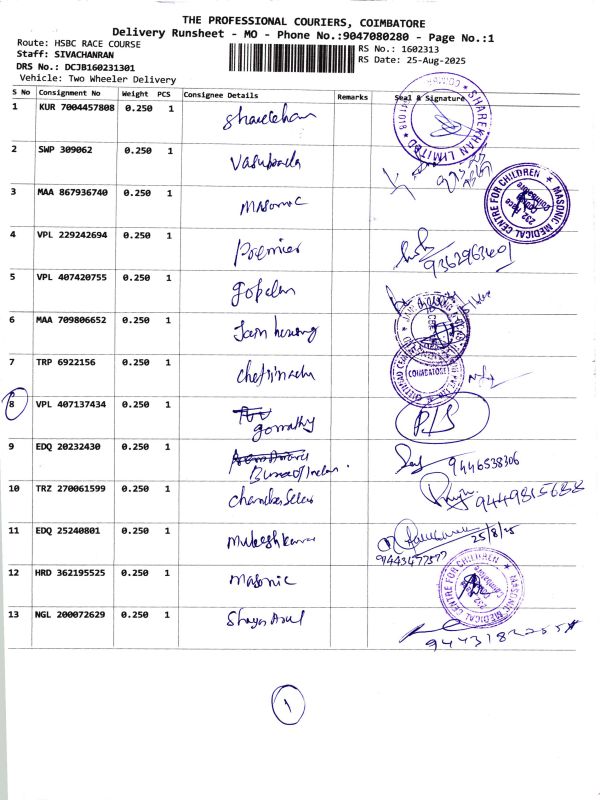 THE PROFESSIONAL COURIERS, COIMBATORE
Delivery Runsheet - MO - Phone No.:9047080280 - Page No.:1
Route: HSBC RACE COURSE
Staff: SIVACHANRAN
DRS No.: DCJB160231301
Vehicle: Two Wheeler Delivery
RS No.: 1602313
RS Date: 25-Aug-2025
S No Consignment No Weight PCS Consignee Details Remarks Seal & Signature
1 KUR 7004457808 0.250 1 Sharekhan
SHAREKHAN LIMITED
2 SWP 309062 0.250 1
3 MAA 867936740 0.250 1 Masonic
MASONIC MEDICAL CENTRE FOR CHILDREN
232, Race Course Coimbatore
4 VPL 229242694 0.250 1 Premier
9362963401
5 VPL 407420755 0.250 1 gopalan
6 MAA 709806652 0.250 1 Jain housing
7 TRP 6922156 0.250 1 Chettinadu
COIMBATORE
8 VPL 407137434 0.250 1 gomathy
P/S
9 EDQ 20232430 0.250 1
9446538306
10 TRZ 270061599 0.250 1
11 EDQ 25240801 0.250 1 Mukesh Kumar
25/8/25
9443477577
12 HRD 362195525 0.250 1 Masonic
MASONIC MEDICAL CENTRE FOR CHILDREN
232, Race Course Coimbatore
13 NGL 200072629 0.250 1
1